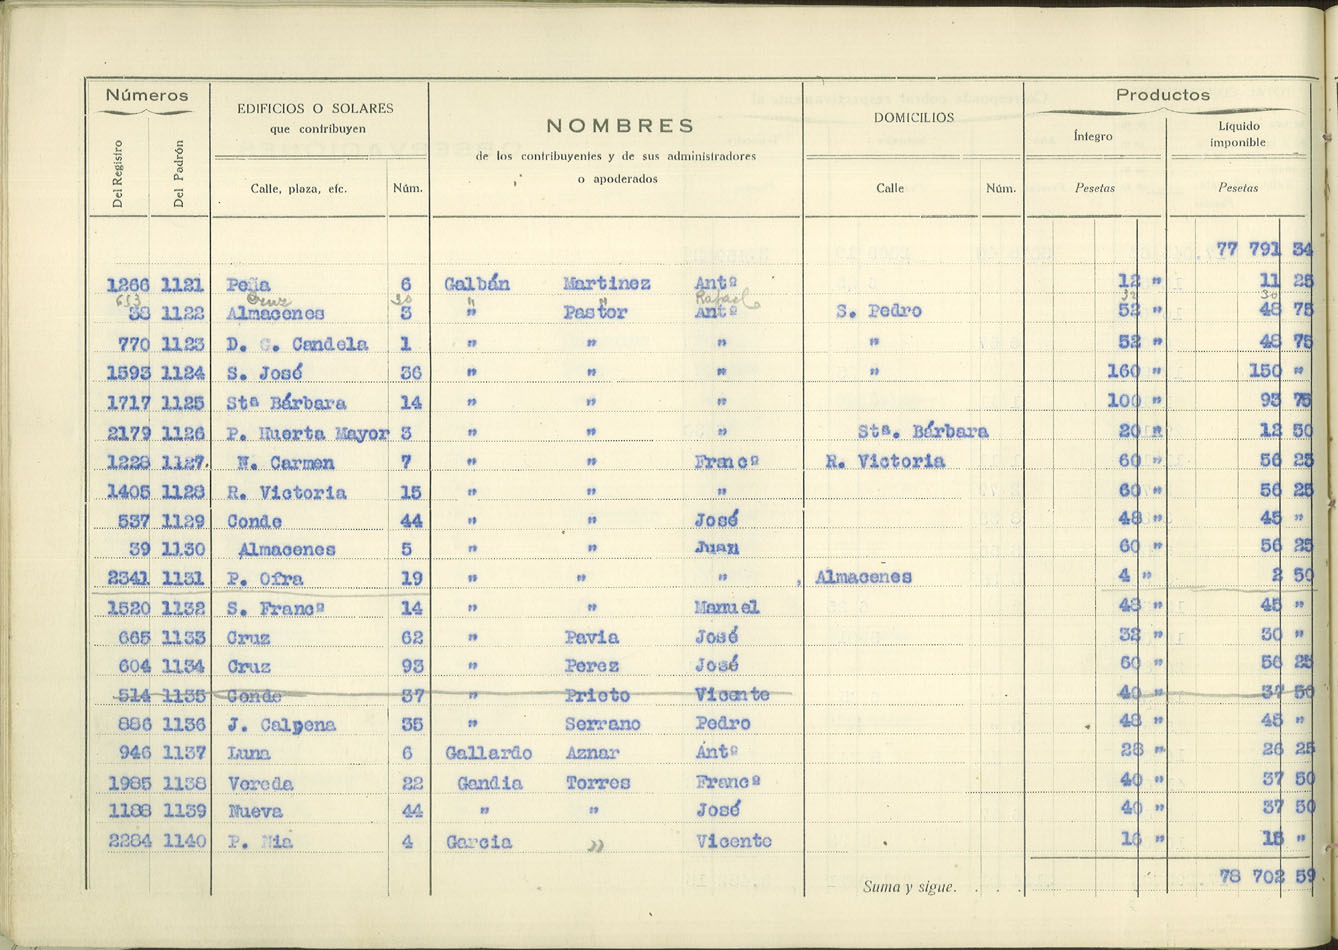 Números
EDIFICIOS O SOLARES
que contribuyen
NOMBRES
de los contribuyentes y de sus administradores
o apoderados
DOMICILIOS
Productos
Íntegro
Líquido imponible
Del Registro Del Padrón Calle, plaza, etc. Núm. Calle Núm. Pesetas Pesetas
77 791 34
1266 1121 Peña 6 Galbán Martinez Antº 12 " 11 25
653 Cruz 30 " " Rafael 32 30
38 1122 Almacenes 3 " Pastor Antº S. Pedro 52 " 48 75
770 1123 D. C. Candela 1 " " " " 52 " 48 75
1593 1124 S. José 36 " " " " 160 " 150 "
1717 1125 Stª Bárbara 14 " " " 100 " 93 75
2179 1126 P. Huerta Mayor 3 " " " Stª. Bárbara 20 " 12 50
1228 1127. N. Carmen 7 " " Francº R. Victoria 60 " 56 25
1405 1128 R. Victoria 15 " " " 60 " 56 25
537 1129 Conde 44 " " José 48 " 45 "
39 1130 Almacenes 5 " " Juan 60 " 56 25
2341 1131 P. Ofra 19 " " " Almacenes 4 " 2 50
1520 1132 S. Francº 14 " " Manuel 48 " 45 "
665 1133 Cruz 62 " Pavia José 32 " 30 "
604 1134 Cruz 93 " Perez José 60 " 56 25
514 1135 Conde 37 " Prieto Vicente 40 " 37 50
886 1136 J. Calpena 35 " Serrano Pedro 48 " 45 "
946 1137 Luna 6 Gallardo Aznar Antº 28 " 26 25
1985 1138 Vereda 22 Gandia Torres Francº 40 " 37 50
1188 1139 Nueva 44 " " José 40 " 37 50
2284 1140 P. Nia 4 Garcia " Vicente 16 " 15 "
Suma y sigue. . . . 78 702 59